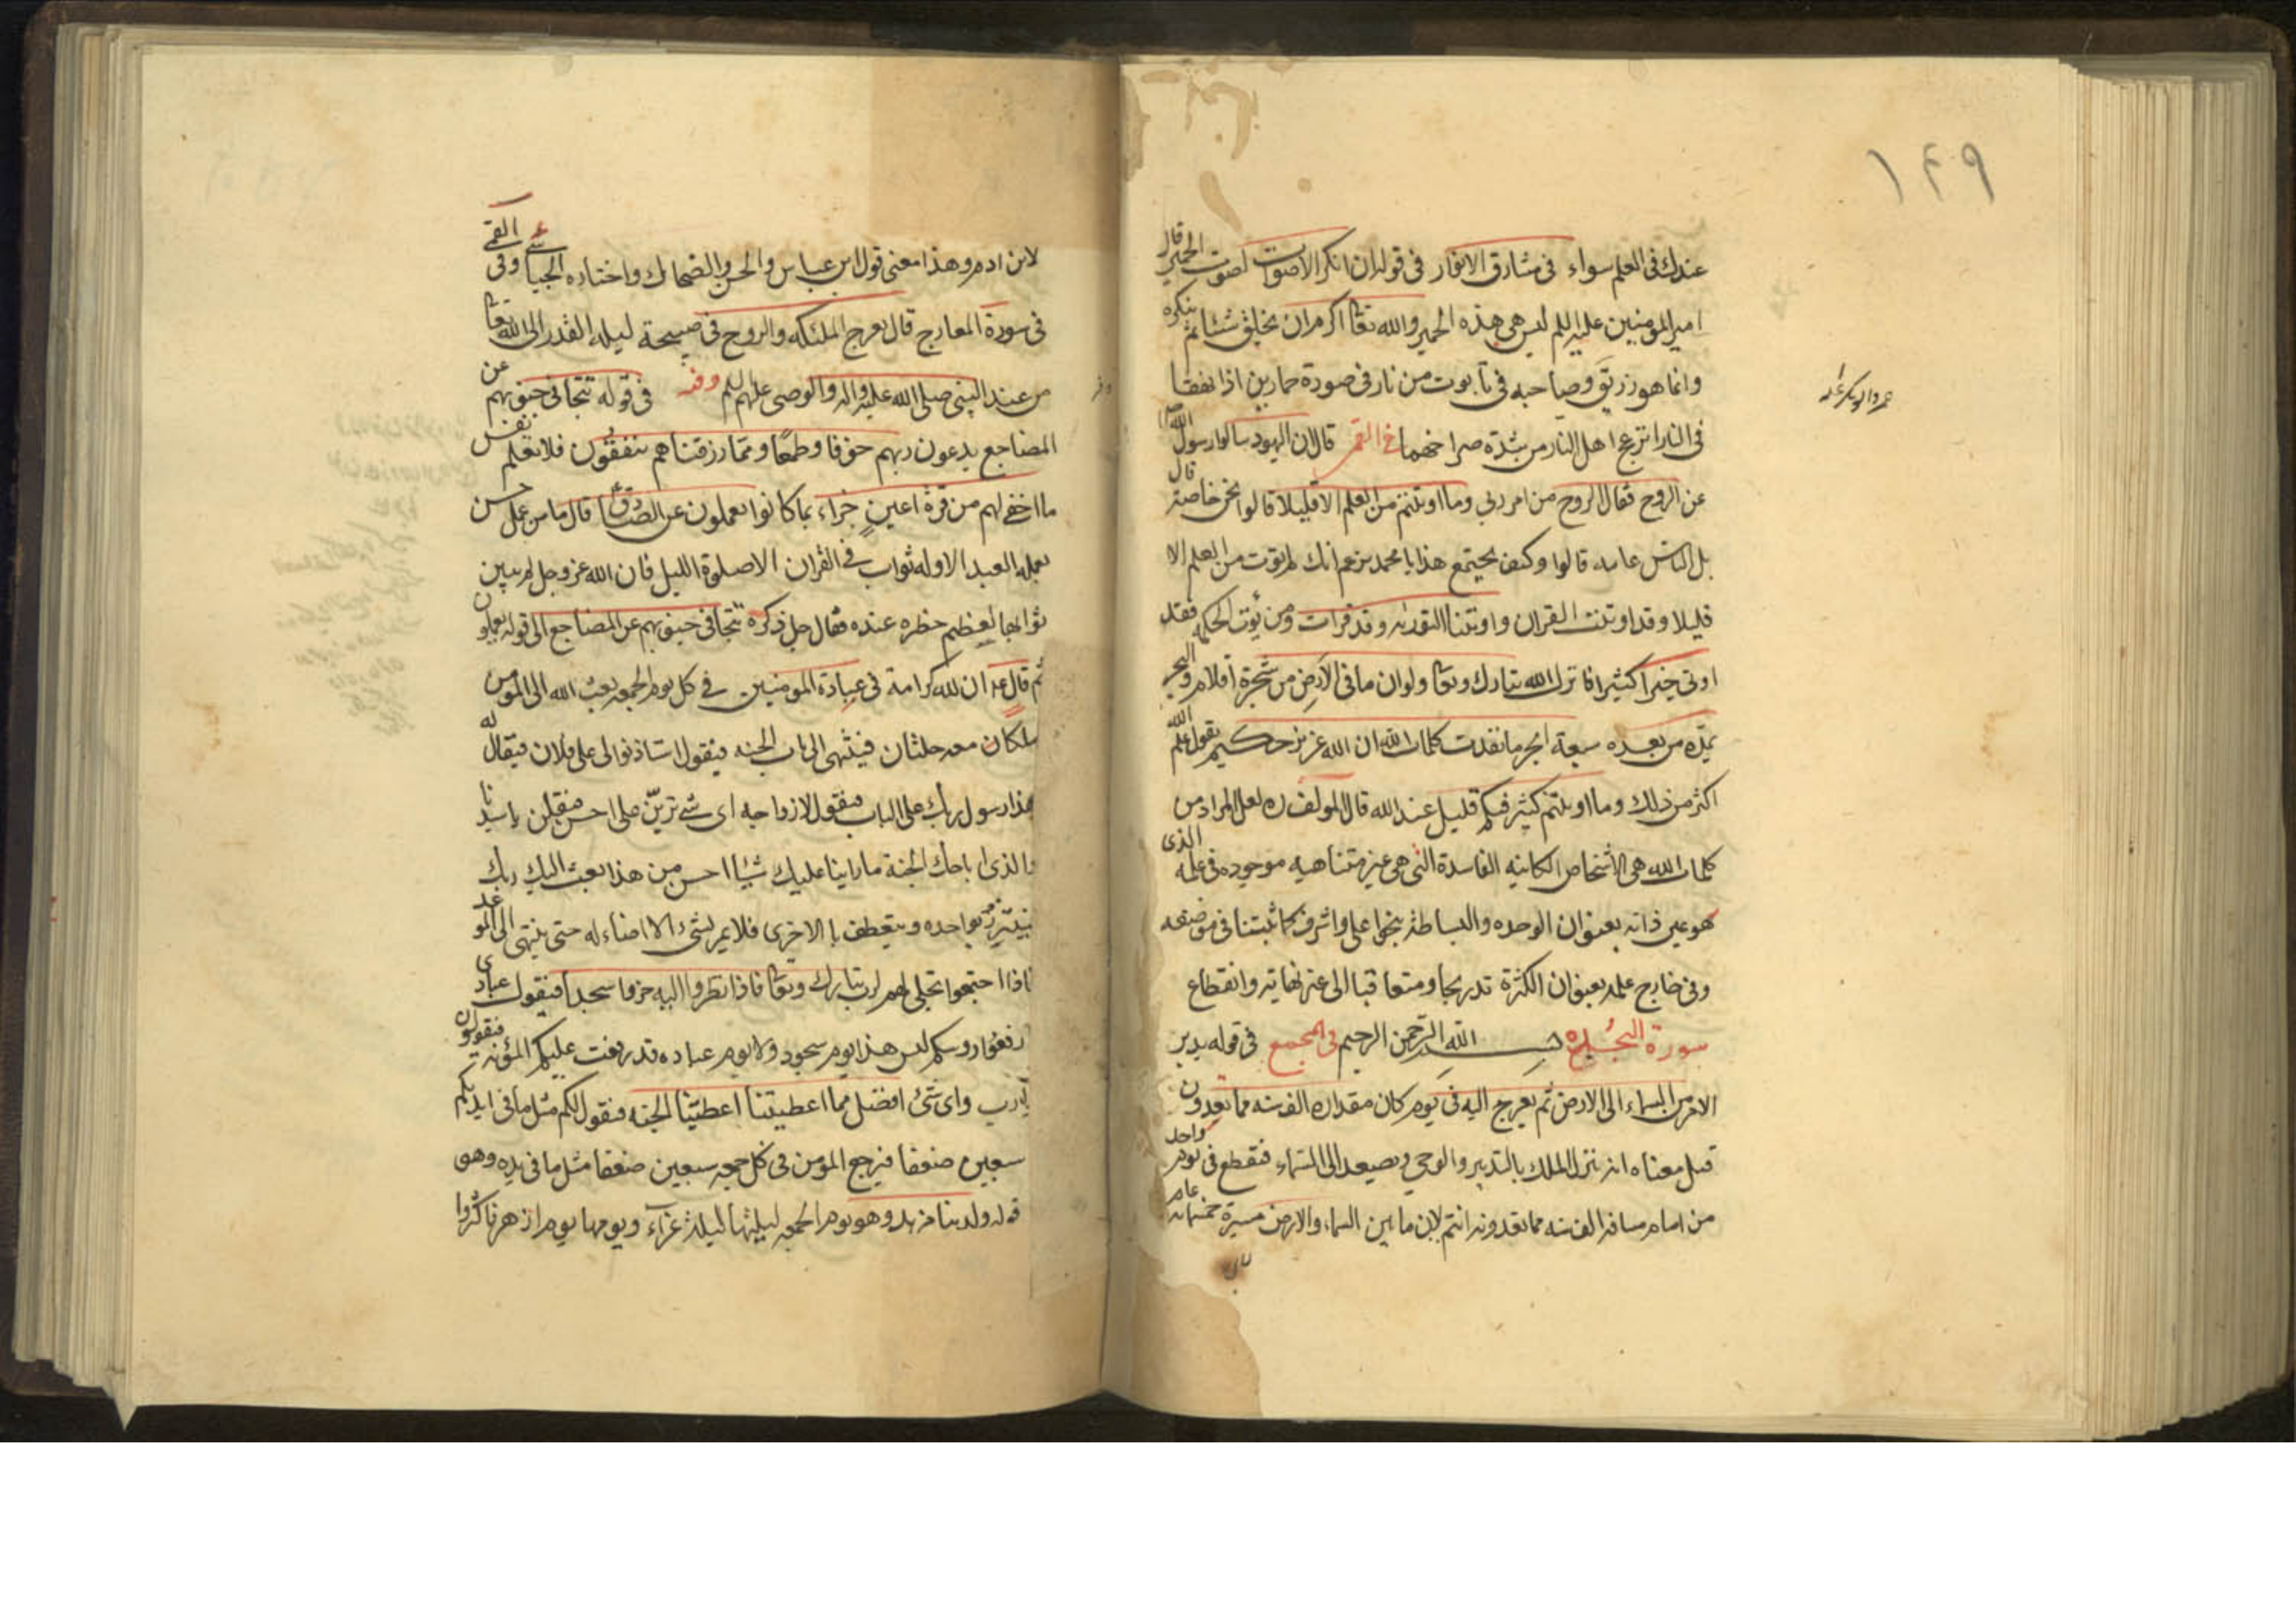 ١٤٩
عندك فى العلم سواء فى مشارق الانوار فى قوله ان انكر الاصوات لصوت الحمير قال
امير المؤمنين عليه السلم ليس هى هذه الحمير والله تعا اكرم ان يخلق شيئا ثم ينكره
وانما هو زريق وصاحبه فى تابوت من نار فى صورة حمارين اذا نهقا
فى النار انزعج اهل النار من شدة صراخهما فى القمى قال ان اليهود سالوا رسول الله
عن الروح فقال الروح من امر ربى وما اوتيتم من العلم الا قليلا قالوا نحن خاصة قال
بل الناس عامه قالوا وكيف يجتمع هذا يا محمد تزعم انك لم توت من العلم الا
قليلا وقد اوتيت القران واوتينا التوراة وقد قرات ومن يؤت الحكمه فقد
اوتى خيرا كثيرا فانزل الله تبارك وتعا ولو ان ما فى الارض من شجرة اقلام والبحر
يمده من بعده سبعة ابحر ما نفدت كلمات الله ان الله عزيز حكيم يقول علم الله
اكثر من ذلك وما اوتيتم كثير فيكم قليل عند الله قال المولف ره لعل المراد من
كلمات الله هى الاشخاص الكاينه الفاسدة التى هى غير متناهيه موجوده فى علمه الذى
هو عين ذاته بعنوان الوحده والبساطة بنحو اعلى واشرف كما ثبتنا فى موضعه
وفى خارج علمه بعنوان الكثرة تدريجا ومتعاقبا الى غير نهاية وانقطاع
سورة السجده بسم الله الرحمن الرحيم فى المجمع فى قوله يدبر
الامر من السماء الى الارض ثم يعرج اليه فى يوم كان مقداره الف سنه مما تعدون
قيل معناه انه ينزل الملك بالتدبير والوحى ويصعد الى السماء فيقطع فى يوم واحد
من ايام مسافه الف سنه مما تعدونه انتم لان ما بين السماء والارض مسيرة خمسمائه عام
لابن ادم وهذا معنى قول ابن عباس والحسن والضحاك واختاره الجبائى وفى القمى
فى سورة المعارج قال تعرج الملئكه والروح فى صبيحة ليله القدر الى الله تعا
من عند النبى صلى الله عليه واله والوصى عليهم السلم وفيه فى قوله تتجافى جنوبهم عن
المضاجع يدعون ربهم خوفا وطمعا ومما رزقناهم ينفقون فلا تعلم نفس
ما اخفى لهم من قرة اعين جزاء بما كانوا يعملون عن الصادق ع قال ما من عمل حسن
يعمله العبد الا وله ثواب فى القران الا صلوة الليل فان الله عز وجل لم يبين
ثوابها لعظيم خطره عنده فقال جل ذكره تتجافى جنوبهم عن المضاجع الى قوله يعملون
ثم قال ع ان لله كرامة فى عباده المومنين فى كل يوم الجمعه يبعث الله الى المومن
ملكا معه حلتان فينتهى الى باب الجنه فيقول استاذنوا لى على فلان فيقال له
هذا رسول ربك على الباب فيقول لازواجه اى شى ترين على احسن فيقلن يا سيدنا
والذى اباحك الجنة ما راينا عليك شيئا احسن من هذا بعث اليك ربك
فيتزر بواحده ويتعطف بالاخرى فلا يمر بشئ الا اضاء له حتى ينتهى الى الموعد
فاذا اجتمعوا تجلى لهم الرب تبارك وتعا فاذا نظروا اليه خروا سجدا فيقول عبادى
ارفعوا روسكم ليس هذا يوم سجود ولا يوم عباده قد رفعت عليكم المؤنة فيقولون
يا رب واى شئ افضل مما اعطيتنا اعطيتنا الجنه فيقول لكم مثل ما فى ايديكم
سبعين ضعفا فيرجع المومن فى كل جمعه سبعين ضعفا مثل ما فى يده وهو
قوله ولدينا مزيد وهو يوم الجمعه ليلتها ليلة غراء ويومها يوم ازهر فاكثروا